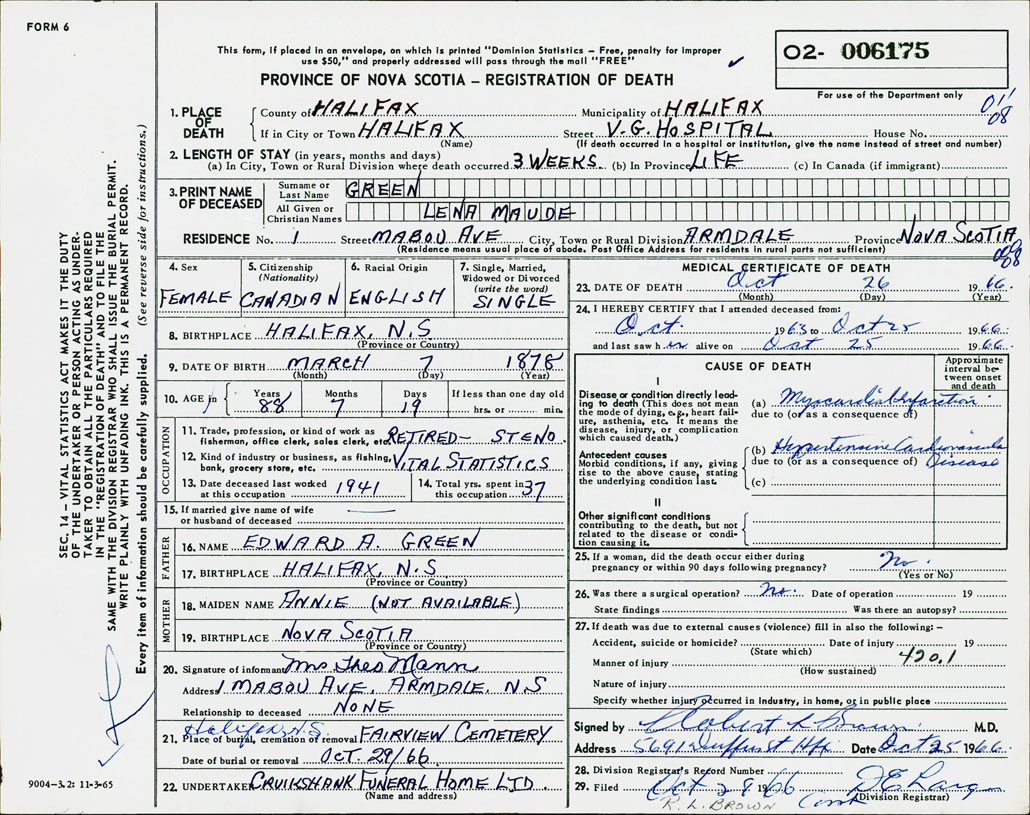 FORM 6
This form, if placed in an envelope, on which is printed "Dominion Statistics – Free, penalty for improper
use $50," and properly addressed will pass through the mail "FREE"
PROVINCE OF NOVA SCOTIA – REGISTRATION OF DEATH
02- 006175
For use of the Department only
01/08
1. PLACE OF DEATH
County of HALIFAX Municipality of HALIFAX
If in City or Town HALIFAX Street V-G. HOSPITAL House No.
(Name) (If death occurred in a hospital or institution, give the name instead of street and number)
2. LENGTH OF STAY (in years, months and days)
(a) In City, Town or Rural Division where death occurred 3 WEEKS (b) In Province LIFE (c) In Canada (if immigrant)
3. PRINT NAME OF DECEASED
Surname or Last Name GREEN
All Given or Christian Names LENA MAUDE
RESIDENCE No. 1 Street MABOU AVE City, Town or Rural Division ARMDALE Province NOVA SCOTIA
(Residence means usual place of abode. Post Office Address for residents in rural parts not sufficient)
4. Sex
FEMALE
5. Citizenship
(Nationality)
CANADIAN
6. Racial Origin
ENGLISH
7. Single, Married,
Widowed or Divorced
(write the word)
SINGLE
8. BIRTHPLACE HALIFAX, N.S.
(Province or Country)
9. DATE OF BIRTH MARCH 7 1878
(Month) (Day) (Year)
10. AGE in Years Months Days If less than one day old
88 7 19 hrs. or min.
OCCUPATION
11. Trade, profession, or kind of work as
fisherman, office clerk, sales clerk, etc. RETIRED – STENO.
12. Kind of industry or business, as fishing,
bank, grocery store, etc. VITAL STATISTICS
13. Date deceased last worked
at this occupation 1941
14. Total yrs. spent in
this occupation 37
15. If married give name of wife
or husband of deceased —
FATHER
16. NAME EDWARD A. GREEN
17. BIRTHPLACE HALIFAX, N.S
(Province or Country)
MOTHER
18. MAIDEN NAME ANNIE (NOT AVAILABLE)
19. BIRTHPLACE NOVA SCOTIA
(Province or Country)
20. Signature of informant Mrs Theo Mann
Address 1 MABOU AVE. ARMDALE, N.S
Relationship to deceased NONE
Halifax N.S
21. Place of burial, cremation or removal FAIRVIEW CEMETERY
Date of burial or removal OCT. 29/66
22. UNDERTAKER CRUIKSHANK FUNERAL HOME LTD.
(Name and address)
MEDICAL CERTIFICATE OF DEATH
23. DATE OF DEATH Oct 26 1966.
(Month) (Day) (Year)
24. I HEREBY CERTIFY that I attended deceased from:
Oct. 1963 to Oct 25 1966.
and last saw her alive on Oct 25 1966.
CAUSE OF DEATH
Approximate interval between onset and death
I
Disease or condition directly leading
to death (This does not mean
the mode of dying, e.g., heart failure,
asthenia, etc. It means the
disease, injury, or complication
which caused death.)
(a) Myocardial Infarction
due to (or as a consequence of)
Antecedent causes
Morbid conditions, if any, giving
rise to the above cause, stating
the underlying condition last.
(b) Hypertensive Cardiovascular
due to (or as a consequence of) Disease
(c)
II
Other significant conditions
contributing to the death, but not
related to the disease or condition
causing it.
25. If a woman, did the death occur either during
pregnancy or within 90 days following pregnancy? No.
(Yes or No)
26. Was there a surgical operation? No. Date of operation 19
State findings Was there an autopsy?
27. If death was due to external causes (violence) fill in also the following:–
Accident, suicide or homicide? Date of injury 19
(State which)
Manner of injury 420.1
(How sustained)
Nature of injury
Specify whether injury occurred in industry, in home, or in public place
Signed by Robert L Brown M.D.
Address 5691 Duffus St Hfx Date Oct 25 1966.
28. Division Registrar's Record Number
29. Filed Oct 28 1966
(Division Registrar)
R. L. BROWN
SEC. 14 – VITAL STATISTICS ACT MAKES IT THE DUTY
OF THE UNDERTAKER OR PERSON ACTING AS UNDER-
TAKER TO OBTAIN ALL THE PARTICULARS REQUIRED
IN THE "REGISTRATION OF DEATH" AND TO FILE THE
SAME WITH THE DIVISION REGISTRAR WHO SHALL ISSUE THE BURIAL PERMIT.
WRITE PLAINLY WITH UNFADING INK. THIS IS A PERMANENT RECORD.
Every item of information should be carefully supplied. (See reverse side for instructions.)
9004–3.2: 11-3-65